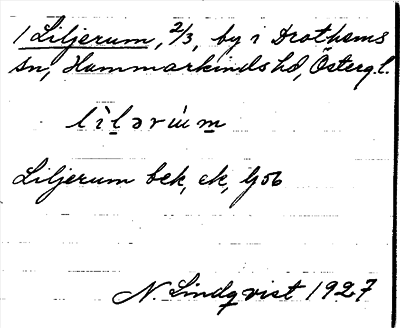 1 Liljerum, 2/3, by i Drothems
sn, Hammarkinds hd, Östergl.
lìḻərúm̱
Liljerum bek, ek, Gob
N. Lindqvist 1927